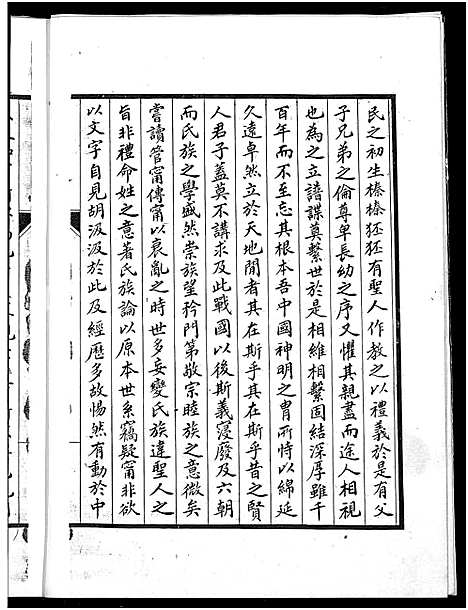 民之初生榛榛狉狉有聖人作教之以禮義於是有父
子兄弟之倫尊卑長幼之序又懼其親盡而途人相視
也為之立譜諜奠繫世於是相維相繫固結深厚雖千
百年而不至忘其根本吾中國神明之胄所恃以綿延
久遠卓然立於天地閒者其在斯乎其在斯乎昔之賢
人君子蓋莫不講求及此戰國以後斯義寖廢及六朝
而氏族之學盛然崇族望矜門第敬宗睦族之意微矣
嘗讀管甯傳甯以衰亂之時世多妄變氏族違聖人之
旨非禮命姓之意著氏族論以原本世系竊疑甯非欲
以文字自見胡汲汲於此及經歷多故惕然有動於中